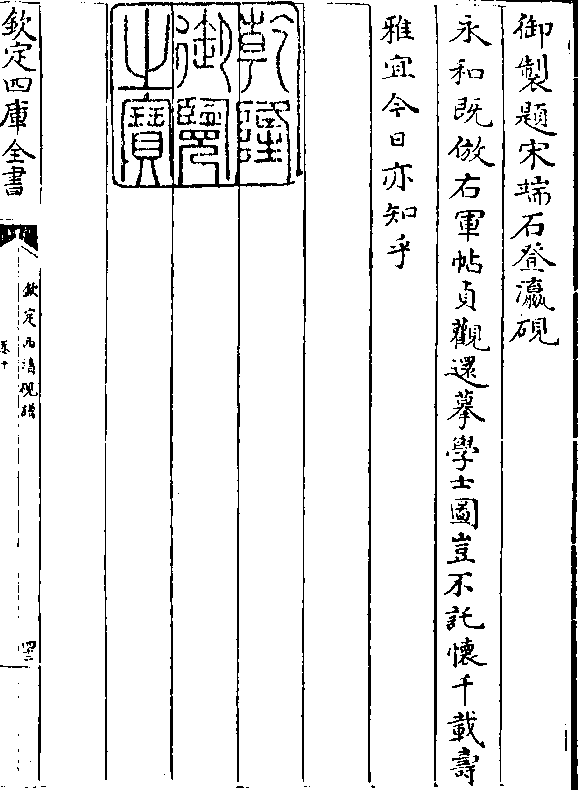 御製題宋端石登瀛硯
永和既倣右軍帖貞觀還摹學士圖豈不託懷千載壽
雅宜今日亦知乎
乾隆
御覽
之寶
欽定四庫全書
欽定西清硯譜
卷十